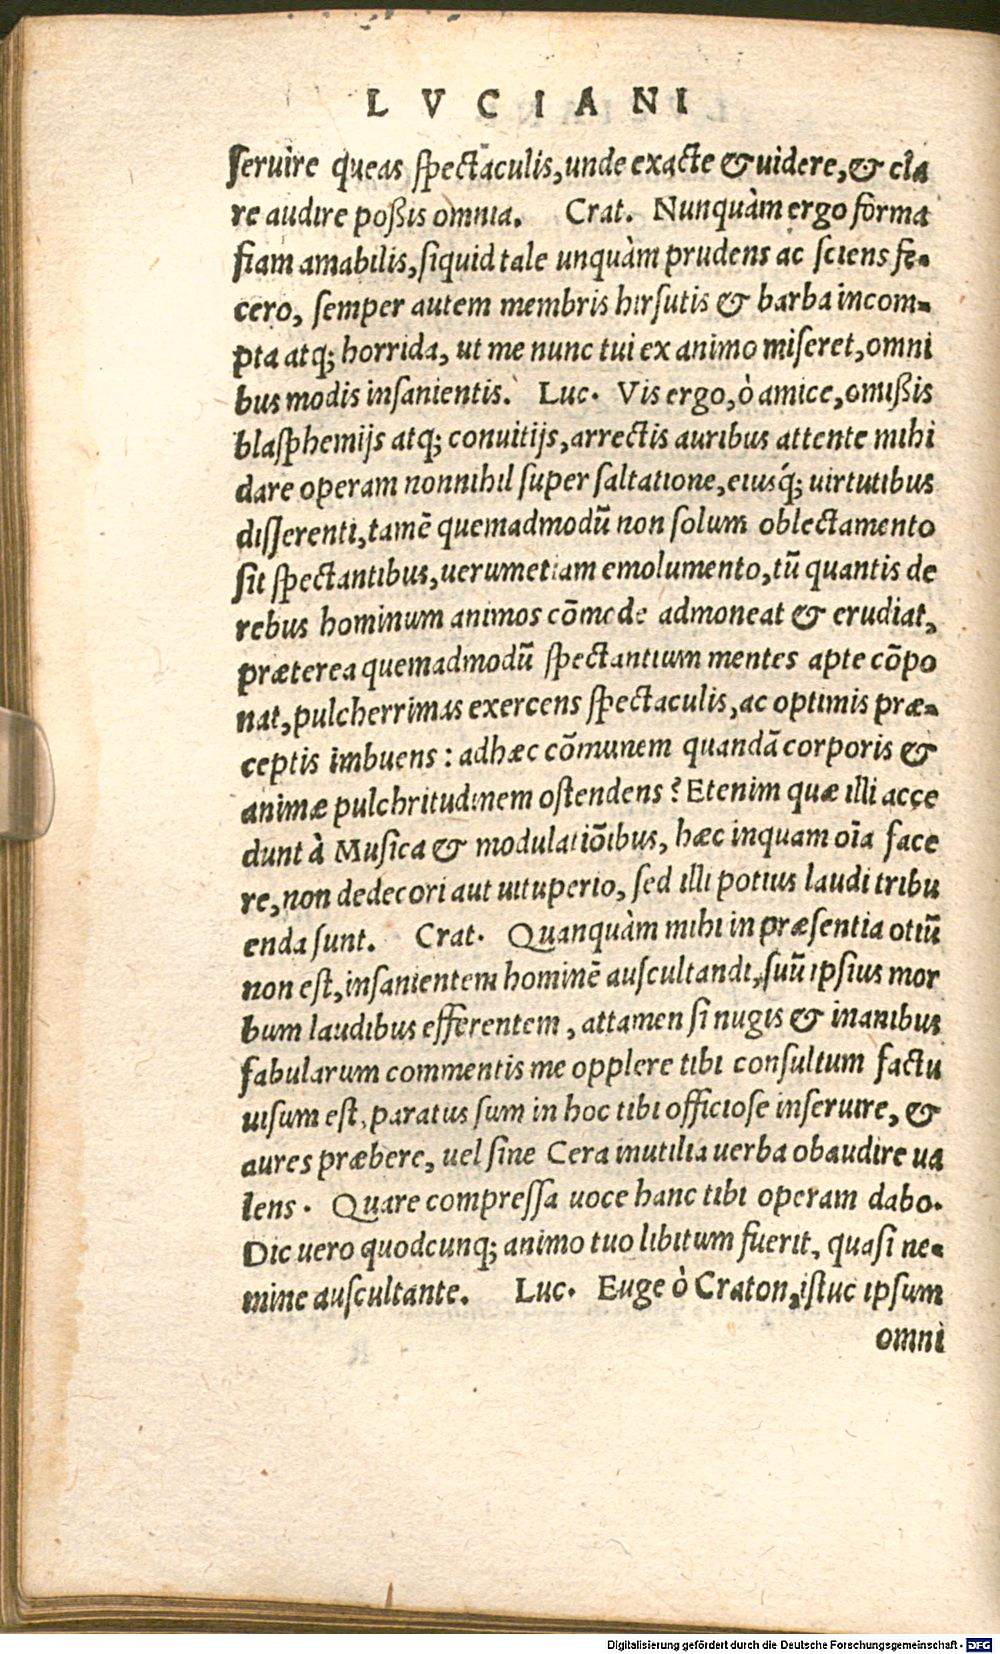 LVCIANI
seruire queas spectaculis, unde exacte & uidere, & cla
re audire poßis omnia. Crat. Nunquàm ergo forma
fiam amabilis, siquid tale unquàm prudens ac sciens fe-
cero, semper autem membris hirsutis & barba incom-
pta atq; horrida, ut me nunc tui ex animo miseret, omni
bus modis insanientis. Luc. Vis ergo, ò amice, omißis
blasphemijs atq; conuitijs, arrectis auribus attente mihi
dare operam nonnihil super saltatione, eiusq́; uirtutibus
disserenti, tamē quemadmodū non solum oblectamento
sit spectantibus, uerumetiam emolumento, tū quantis de
rebus hominum animos cōmode admoneat & erudiat,
præterea quemadmodū spectantium mentes apte cōpo
nat, pulcherrimas exercens spectaculis, ac optimis præ-
ceptis imbuens: adhæc cōmunem quandā corporis &
animæ pulchritudinem ostendens? Etenim quæ illi acce
dunt à Musica & modulatiōibus, hæc inquam oīa face
re, non dedecori aut uituperio, sed illi potius laudi tribu
enda sunt. Crat. Quanquàm mihi in præsentia otiū
non est, insanientem hominē auscultandi, suū ipsius mor
bum laudibus efferentem, attamen si nugis & inanibus
fabularum commentis me opplere tibi consultum factu
uisum est, paratus sum in hoc tibi officiose inseruire, &
aures præbere, uel sine Cera inutilia uerba obaudire ua
lens. Quare compressa uoce hanc tibi operam dabo.
Dic uero quodcunq; animo tuo libitum fuerit, quasi ne-
mine auscultante. Luc. Euge ò Craton, istuc ipsum
omni
Digitalisierung gefördert durch die Deutsche Forschungsgemeinschaft - DFG